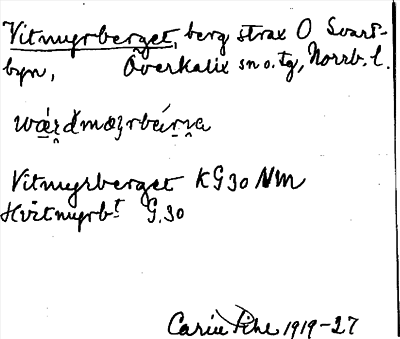 Vitmyrberget, berg strax O Svart-
byn, Överkalix sn o. tg, Norrb. l.
Vitmyrberget KG30 NM
Hvitmyrbt G.30
Carin Pihl 1919-27